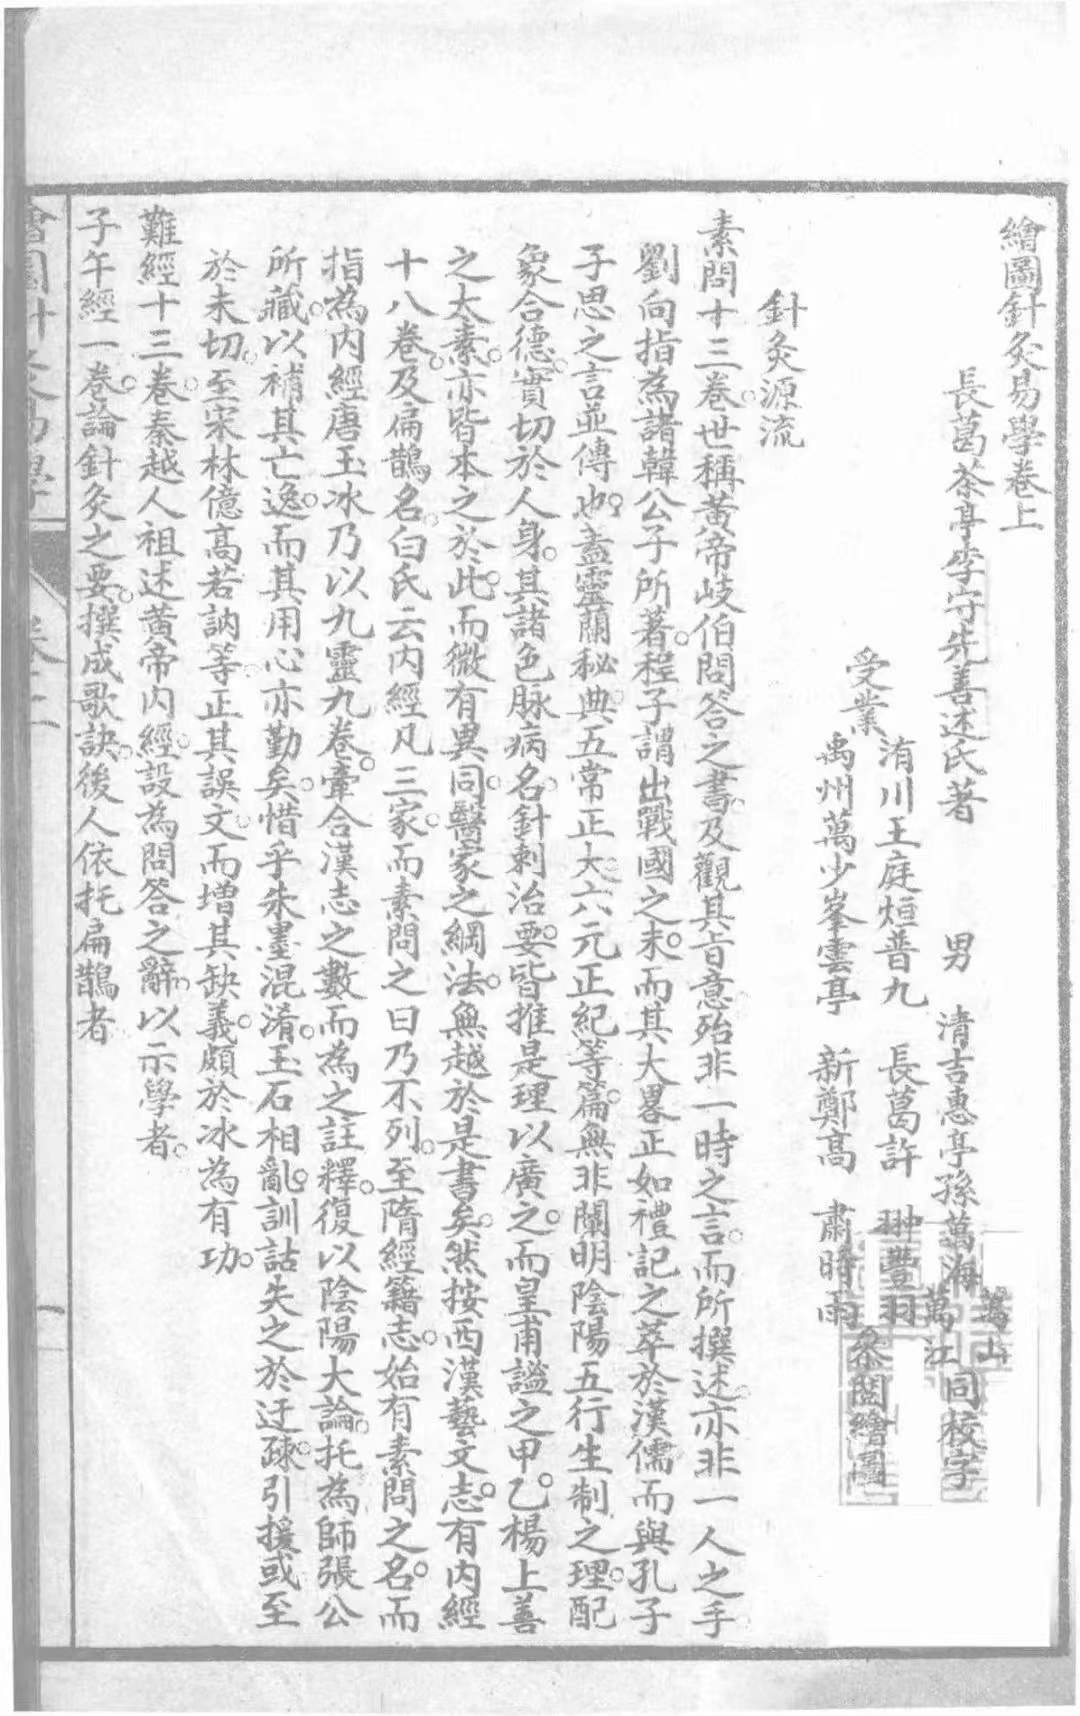 繪圖針灸易學卷上
長葛荼亭李守先善述氏著 男 清吉惠亭孫萬海 萬山 萬江 同校字
受業 洧川王庭烜普九 長葛許 翀豐羽
禹州萬少峯雲亭 新鄭高 肅時雨 叅閱繪圖
針灸源流
素問十三卷世稱黃帝岐伯問答之書及觀其旨意殆非一時之言而所撰述亦非一人之手
劉向指為諸韓公子所著程子謂出戰國之末而其大畧正如禮記之萃於漢儒而與孔子
子思之言並傳也蓋靈蘭秘典五常正大六元正紀等篇無非闡明陰陽五行生制之理配
象合德實切於人身其諸色脉病名針刺治要皆推是理以廣之而皇甫謐之甲乙楊上善
之太素亦皆本之於此而微有異同醫家之綱法無越於是書矣然按西漢藝文志有內經
十八卷及扁鵲名白氏云內經凡三家而素問之曰乃不列至隋經籍志始有素問之名而
指為內經唐王冰乃以九靈九卷牽合漢志之數而為之註釋復以陰陽大論托為師張公
所藏以補其亡逸而其用心亦勤矣惜乎朱墨混淆玉石相亂訓詁失之於迂疎引援或至
於未切至宋林億高若訥等正其誤文而增其缺義頗於冰為有功
難經十三卷秦越人祖述黃帝內經設為問答之辭以示學者
子午經一卷論針灸之要撰成歌訣後人依托扁鵲者